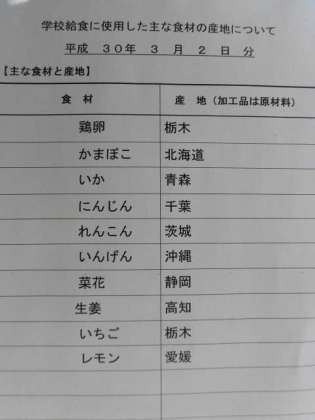 学校給食に使用した主な食材の産地について
平成 30年 3 月 2 日 分
【主な食材と産地】
食 材 産 地（加工品は原材料）
鶏卵 栃木
かまぼこ 北海道
いか 青森
にんじん 千葉
れんこん 茨城
いんげん 沖縄
菜花 静岡
生姜 高知
いちご 栃木
レモン 愛媛